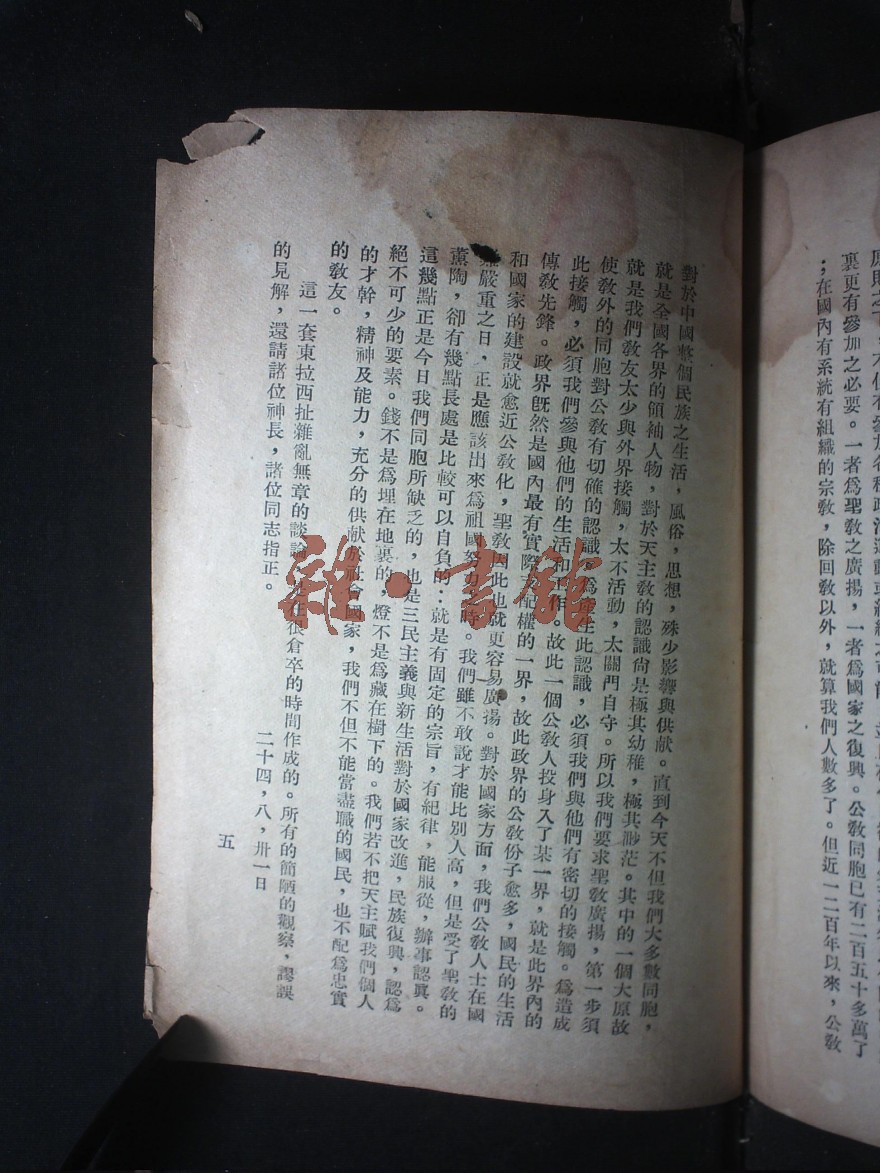 裏更有參加之必要。一者爲聖教之廣揚，一者爲國家之復興。公教同胞已有二百五十多萬了
；在國內有系統有組織的宗教，除回教以外，就算我們人數多了。但近一二百年以來，公教
對於中國整個民族之生活，風俗，思想，殊少影響與供献。直到今天不但我們大多數同胞，
就是全國各界的領袖人物，對於天主教的認識尚是極其幼稚，極其渺茫。其中的一個大原故
就是我們教友太少與外界接觸，太不活動，太關門自守。所以我們要求聖教廣揚，第一步須
使教外的同胞對公教有切確的認識，爲產生此認識，必須我們與他們有密切的接觸。爲造成
此接觸，必須我們參與他們的生活和工作。故此一個公教人投身入了某一界，就是此界內的
傳教先鋒。政界旣然是國內最有實際支配權的一界，故此政界的公教份子愈多，國民的生活
和國家的建設就愈近公教化，聖教因此也就更容易廣揚。對於國家方面，我們公教人士在國
嚴重之日，正是應該出來爲祖國努力時。我們雖不敢說才能比別人高，但是受了聖教的
薰陶，卻有幾點長處是比較可以自負的：就是有固定的宗旨，有紀律，能服從，辦事認眞。
這幾點正是今日我們同胞所缺乏的，也是三民主義與新生活對於國家改進，民族復興，認爲
絕不可少的要素。錢不是爲埋在地裏的，燈不是爲藏在樹下的。我們若不把天主賦我們個人
的才幹，精神及能力，充分的供献於社會國家，我們不但不能當盡職的國民，也不配爲忠實
的教友。
這一套東拉西扯雜亂無章的談論，是在很倉卒的時間作成的。所有的簡陋的觀察，謬誤
的見解，還請諸位神長，諸位同志指正。
二十四，八，卅一日
五
雜·書館